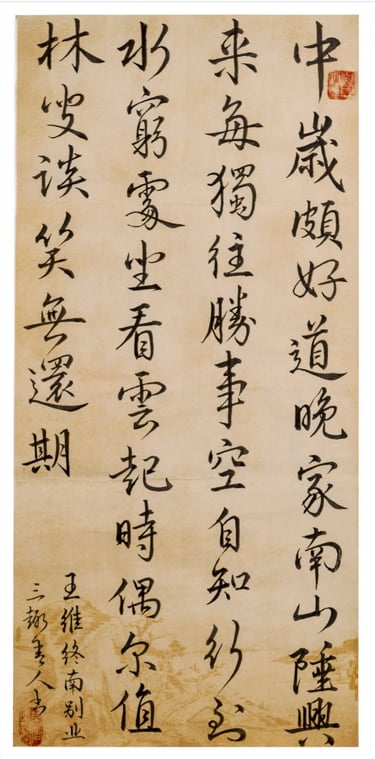 中歲頗好道晚家南山陲興
来每獨往勝事空自知行到
水窮處坐看雲起時偶尔值
林叟談笑無還期
王維终南别业
三人书